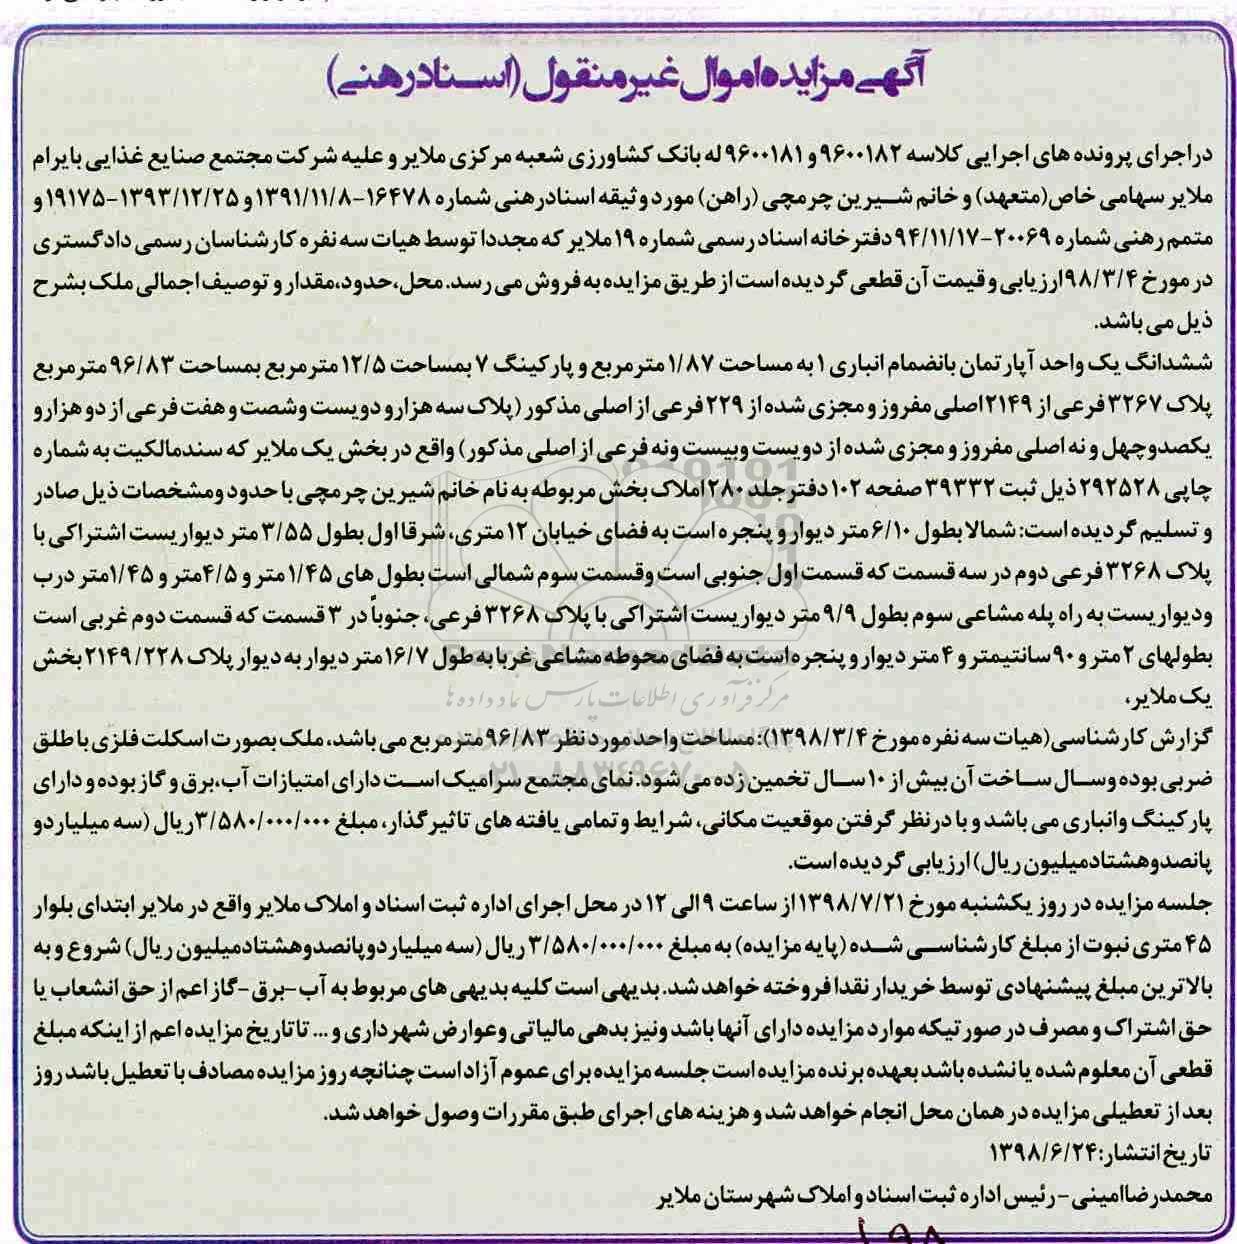 آگهی مزایده اموال غیرمنقول (اسنادرهنی)
دراجرای پرونده های اجرایی کلاسه ۹۶۰۰۱۸۲ و ۹۶۰۰۱۸۱ له بانک کشاورزی شعبه مرکزی ملایر و علیه شرکت مجتمع صنایع غذایی بایرام
ملایر سهامی خاص(متعهد) و خانم شیرین چرمچی (راهن) مورد وثیقه اسنادرهنی شماره ۱۶۴۷۸-۱۳۹۱/۱۱/۸ و ۱۳۹۳/۱۲/۲۵-۱۹۱۷۵ و
متمم رهنی شماره ۲۰۰۶۹-۹۴/۱۱/۱۷ دفترخانه اسناد رسمی شماره ۱۹ ملایر که مجددا توسط هیات سه نفره کارشناسان رسمی دادگستری
در مورخ ۹۸/۳/۴ ارزیابی و قیمت آن قطعی گردیده است از طریق مزایده به فروش می رسد. محل،حدود،مقدار و توصیف اجمالی ملک بشرح
ذیل می باشد.
ششدانگ یک واحد آپارتمان بانضمام انباری ۱ به مساحت ۱/۸۷ مترمربع و پارکینگ ۷ بمساحت ۱۲/۵ مترمربع بمساحت ۹۶/۸۳ مترمربع
پلاک ۳۲۶۷ فرعی از ۲۱۴۹ اصلی مفروز و مجزی شده از ۲۲۹ فرعی از اصلی مذکور (پلاک سه هزارو دویست وشصت و هفت فرعی از دو هزارو
یکصدوچهل و نه اصلی مفروز و مجزی شده از دویست وبیست ونه فرعی از اصلی مذکور) واقع در بخش یک ملایر که سندمالکیت به شماره
چاپی ۲۹۲۵۲۸ ذیل ثبت ۳۹۳۳۲ صفحه ۱۰۲ دفترجلد ۲۸۰ املاک بخش مربوطه به نام خانم شیرین چرمچی با حدود ومشخصات ذیل صادر
و تسلیم گردیده است: شمالا بطول ۶/۱۰ متر دیوار و پنجره است به فضای خیابان ۱۲ متری، شرقا اول بطول ۳/۵۵ متر دیواریست اشتراکی با
پلاک ۳۲۶۸ فرعی دوم در سه قسمت که قسمت اول جنوبی است وقسمت سوم شمالی است بطول های ۱/۴۵ متر و ۴/۵متر و ۱/۴۵متر درب
ودیواریست به راه پله مشاعی سوم بطول ۹/۹ متر دیواریست اشتراکی با پلاک ۳۲۶۸ فرعی، جنوباً در ۳ قسمت که قسمت دوم غربی است
بطولهای ۲ متر و ۹۰ سانتیمتر و ۴ متر دیوار و پنجره است به فضای محوطه مشاعی غربا به طول ۱۶/۷ متر دیوار به دیوار پلاک ۲۱۴۹/۲۲۸ بخش
یک ملایر،
گزارش کارشناسی(هیات سه نفره مورخ ۱۳۹۸/۳/۴): مساحت واحد مورد نظر ۹۶/۸۳ مترمربع می باشد، ملک بصورت اسکلت فلزی با طلق
ضربی بوده وسال ساخت آن بیش از ۱۰ سال تخمین زده می شود. نمای مجتمع سرامیک است دارای امتیازات آب،برق و گاز بوده و دارای
پارکینگ وانباری می باشد و با درنظر گرفتن موقعیت مکانی، شرایط و تمامی یافته های تاثیرگذار، مبلغ ۳/۵۸۰/۰۰۰/۰۰۰ریال (سه میلیاردو
پانصدوهشتادمیلیون ریال) ارزیابی گردیده است.
جلسه مزایده در روز یکشنبه مورخ ۱۳۹۸/۷/۲۱ از ساعت ۹ الی ۱۲ در محل اجرای اداره ثبت اسناد و املاک ملایر واقع در ملایر ابتدای بلوار
۴۵ متری نبوت از مبلغ کارشناسی شده (پایه مزایده) به مبلغ ۳/۵۸۰/۰۰۰/۰۰۰ ریال (سه میلیاردوپانصدوهشتادمیلیون ریال) شروع و به
بالاترین مبلغ پیشنهادی توسط خریدار نقدا فروخته خواهد شد. بدیهی است کلیه بدیهی های مربوط به آب-برق-گاز اعم از حق انشعاب یا
حق اشتراک و مصرف در صورتیکه موارد مزایده دارای آنها باشد ونیز بدهی مالیاتی وعوارض شهرداری و ... تا تاریخ مزایده اعم از اینکه مبلغ
قطعی آن معلوم شده یا نشده باشد بعهده برنده مزایده است جلسه مزایده برای عموم آزاد است چنانچه روز مزایده مصادف با تعطیل باشد روز
بعد از تعطیلی مزایده در همان محل انجام خواهد شد و هزینه های اجرای طبق مقررات وصول خواهد شد.
تاریخ انتشار: ۱۳۹۸/۶/۲۴
محمدرضا امینی - رئیس اداره ثبت اسناد و املاک شهرستان ملایر